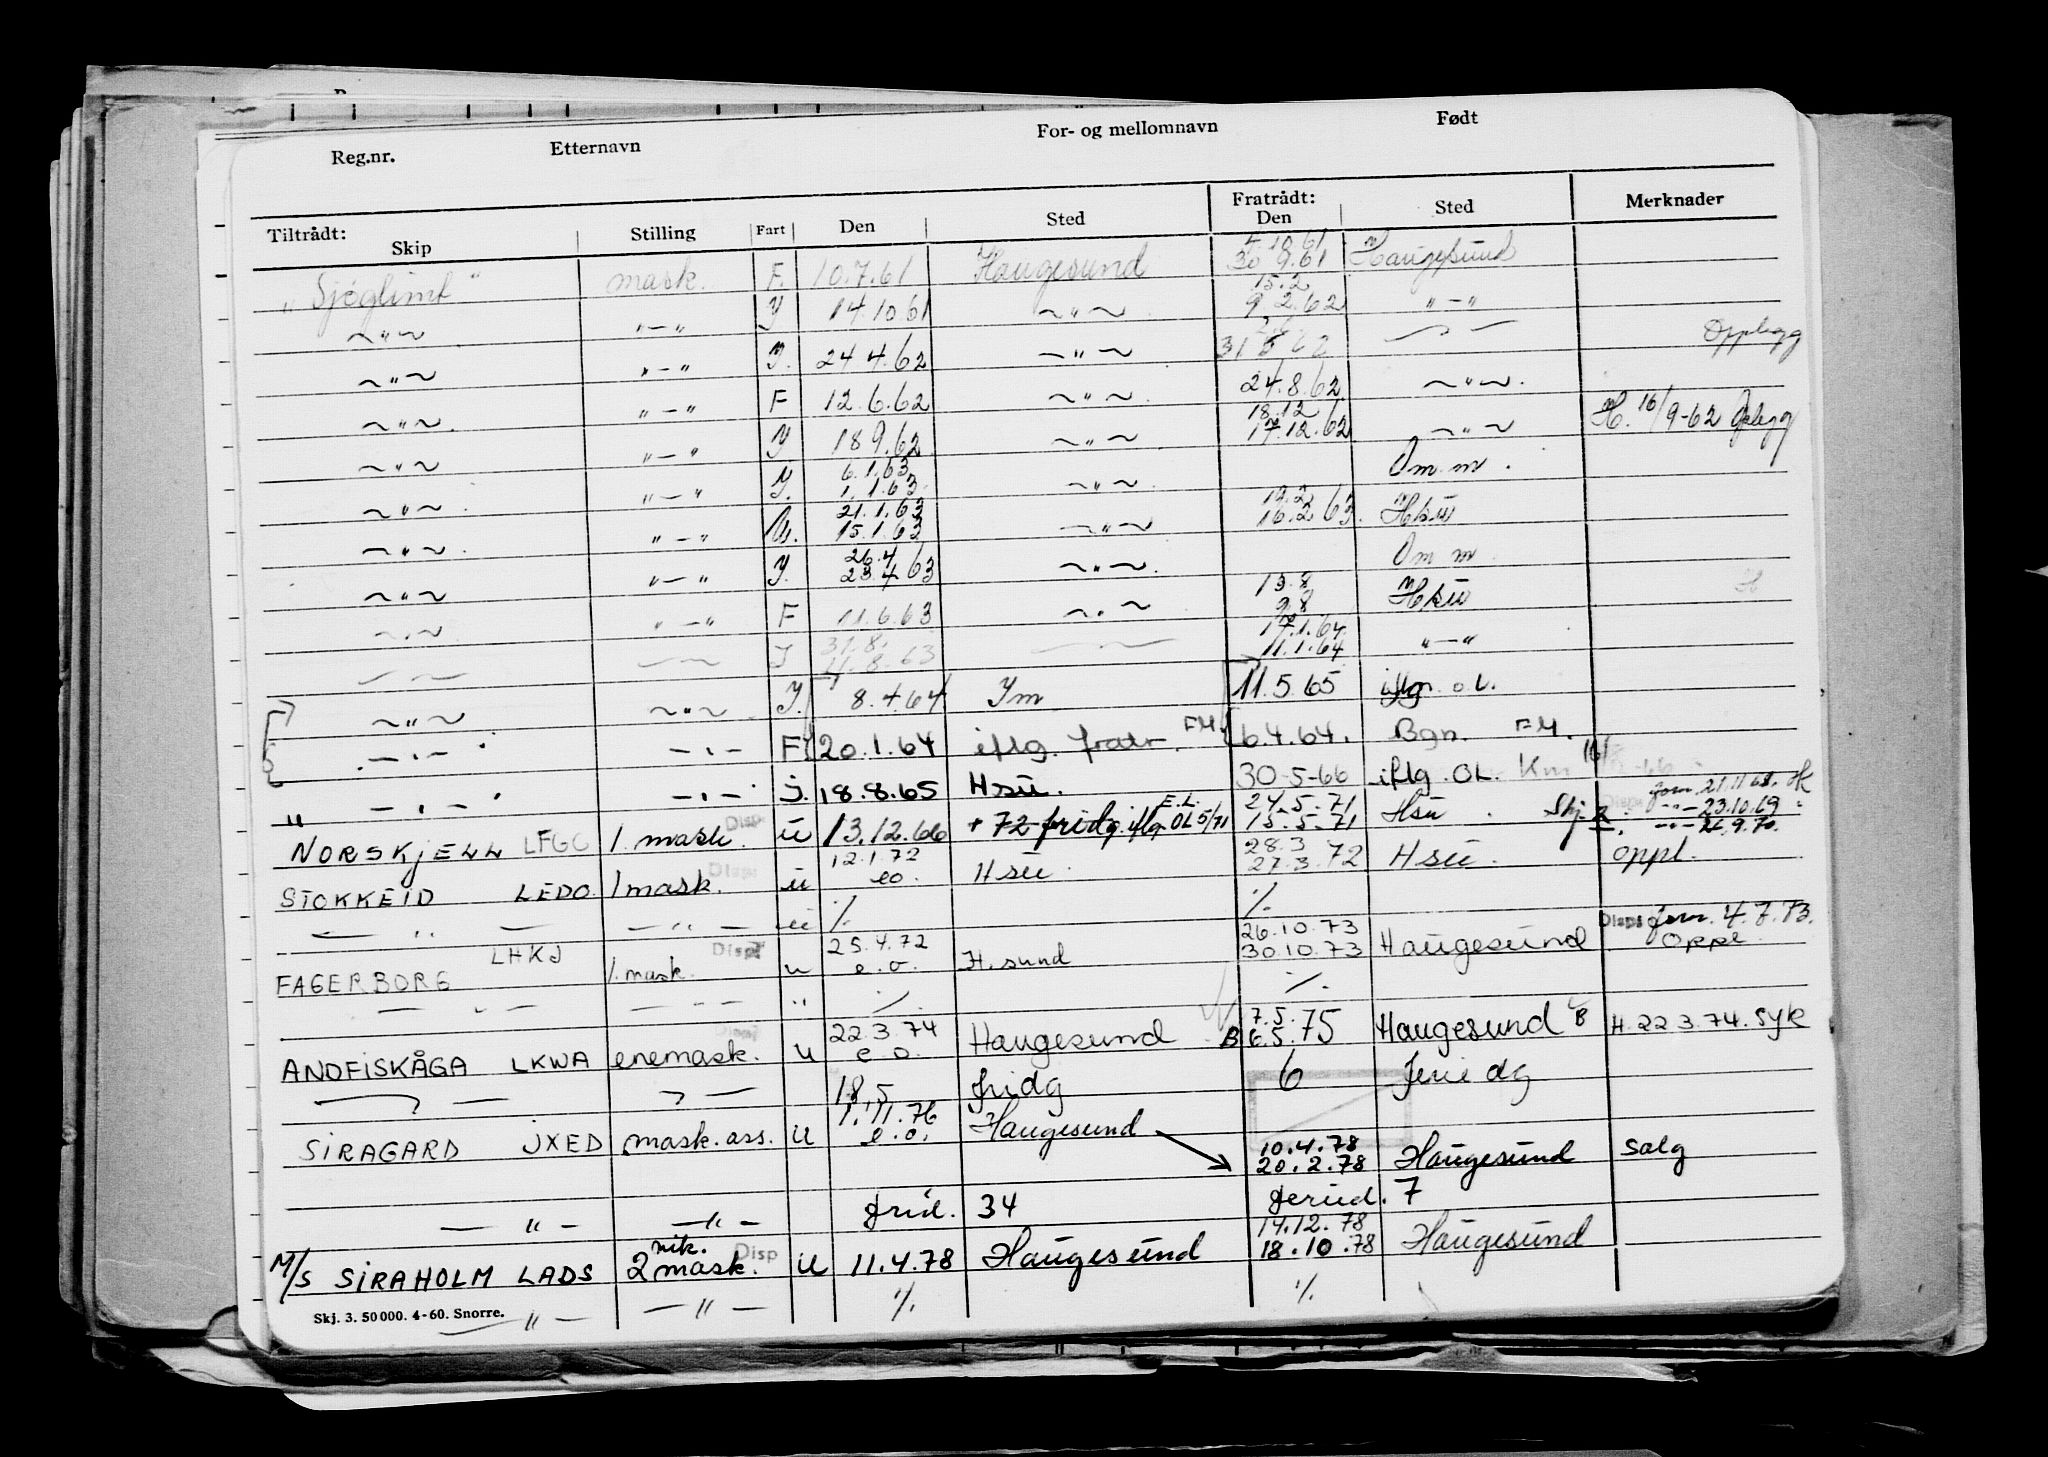 Reg.nr. Etternavn For- og mellomnavn Født
Tiltrådt: Skip Stilling Fart Den Sted Fratrådt: Den Sted Merknader
4.10.61
"Sjøglimt" mask. F. 10.7.61 Haugesund 30 9.61 Haugesund
15.2
~"~ "-" J 14.10.61 ~"~ 9 2.62 "-"
~"~ "-" J. 24 4.62 ~"~ 31 5 62 Opplegg
~"~ "-" F 12.6.62 ~"~ 24.8.62 ~"~
18.12
~"~ "-" J 18 9.62 ~"~ 17.12.62 ~"~ H. 16/9-62 Oplegg
6.1.63
~"~ "-" J. 1.1.63 ~"~ Om m.
21.1.63 19.2
~"~ "-" U. 15.1.63 ~"~ 16.2 63. Hsu
26.4
~"~ "-" J. 23.4 63 ~"~ Om m
13.8
~"~ "-" F 11.6.63 ~"~ 9.8 Hsu H
31.8. 17.1.64
J 11.8.63 11.1.64 "-"
~"~ ~"~ J. 8.4.64 Ym 11.5.65 iflg. o.l.
-"- -"- F 20.1.64 iflg. fratr. FM 6.4.64. Bgn. FM.
-"- -"- J. 18.8.65 Hsu. 30-5-66 iflg. OL. Km
E.L. 24.5.71 21.11.68. H
" Disp 23.10.69 "
NORSKJELL LFGC 1. mask. Disp u 13.12.66 + 72 fridg. iflg. OL 5/71 15.5.71 Hsu. Skj. 2. -"- 26.9.70.
12.1.72 28.3
STOKKEID LEDO 1 mask. Disp u eo. Hsu. 27.3.72 Hsu. oppl.
— " — — " — u ./. ./.
LHKJ 25.4.72 26.10.73 Disp 4.7.73.
FAGERBORG 1. mask. Disp u e.o. H.sund 30.10.73 Haugesund Oppl
— " — — " — " ./. ./.
22.3.74 7.5.
ANDFISKÅGA LKWA enemask. Disp u e.o. Haugesund B 6.5.75 Haugesund B H.22 3.74. Syk
— " — — " — 18,5 fridg 6 feriedg
1.11.76
SIRAGARD JXED mask.ass. U e.o. Haugesund
10.4.78
20.2.78 Haugesund Salg
— " — — " — frid. 34 feried. 7
vik. 14.12.78
M/S SIRAHOLM LADS 2 mask. Disp U 11.4.78 Haugesund 18.10.78 Haugesund
— " — — " — ./. ./.
Skj. 3. 50 000. 4-60. Snorre.